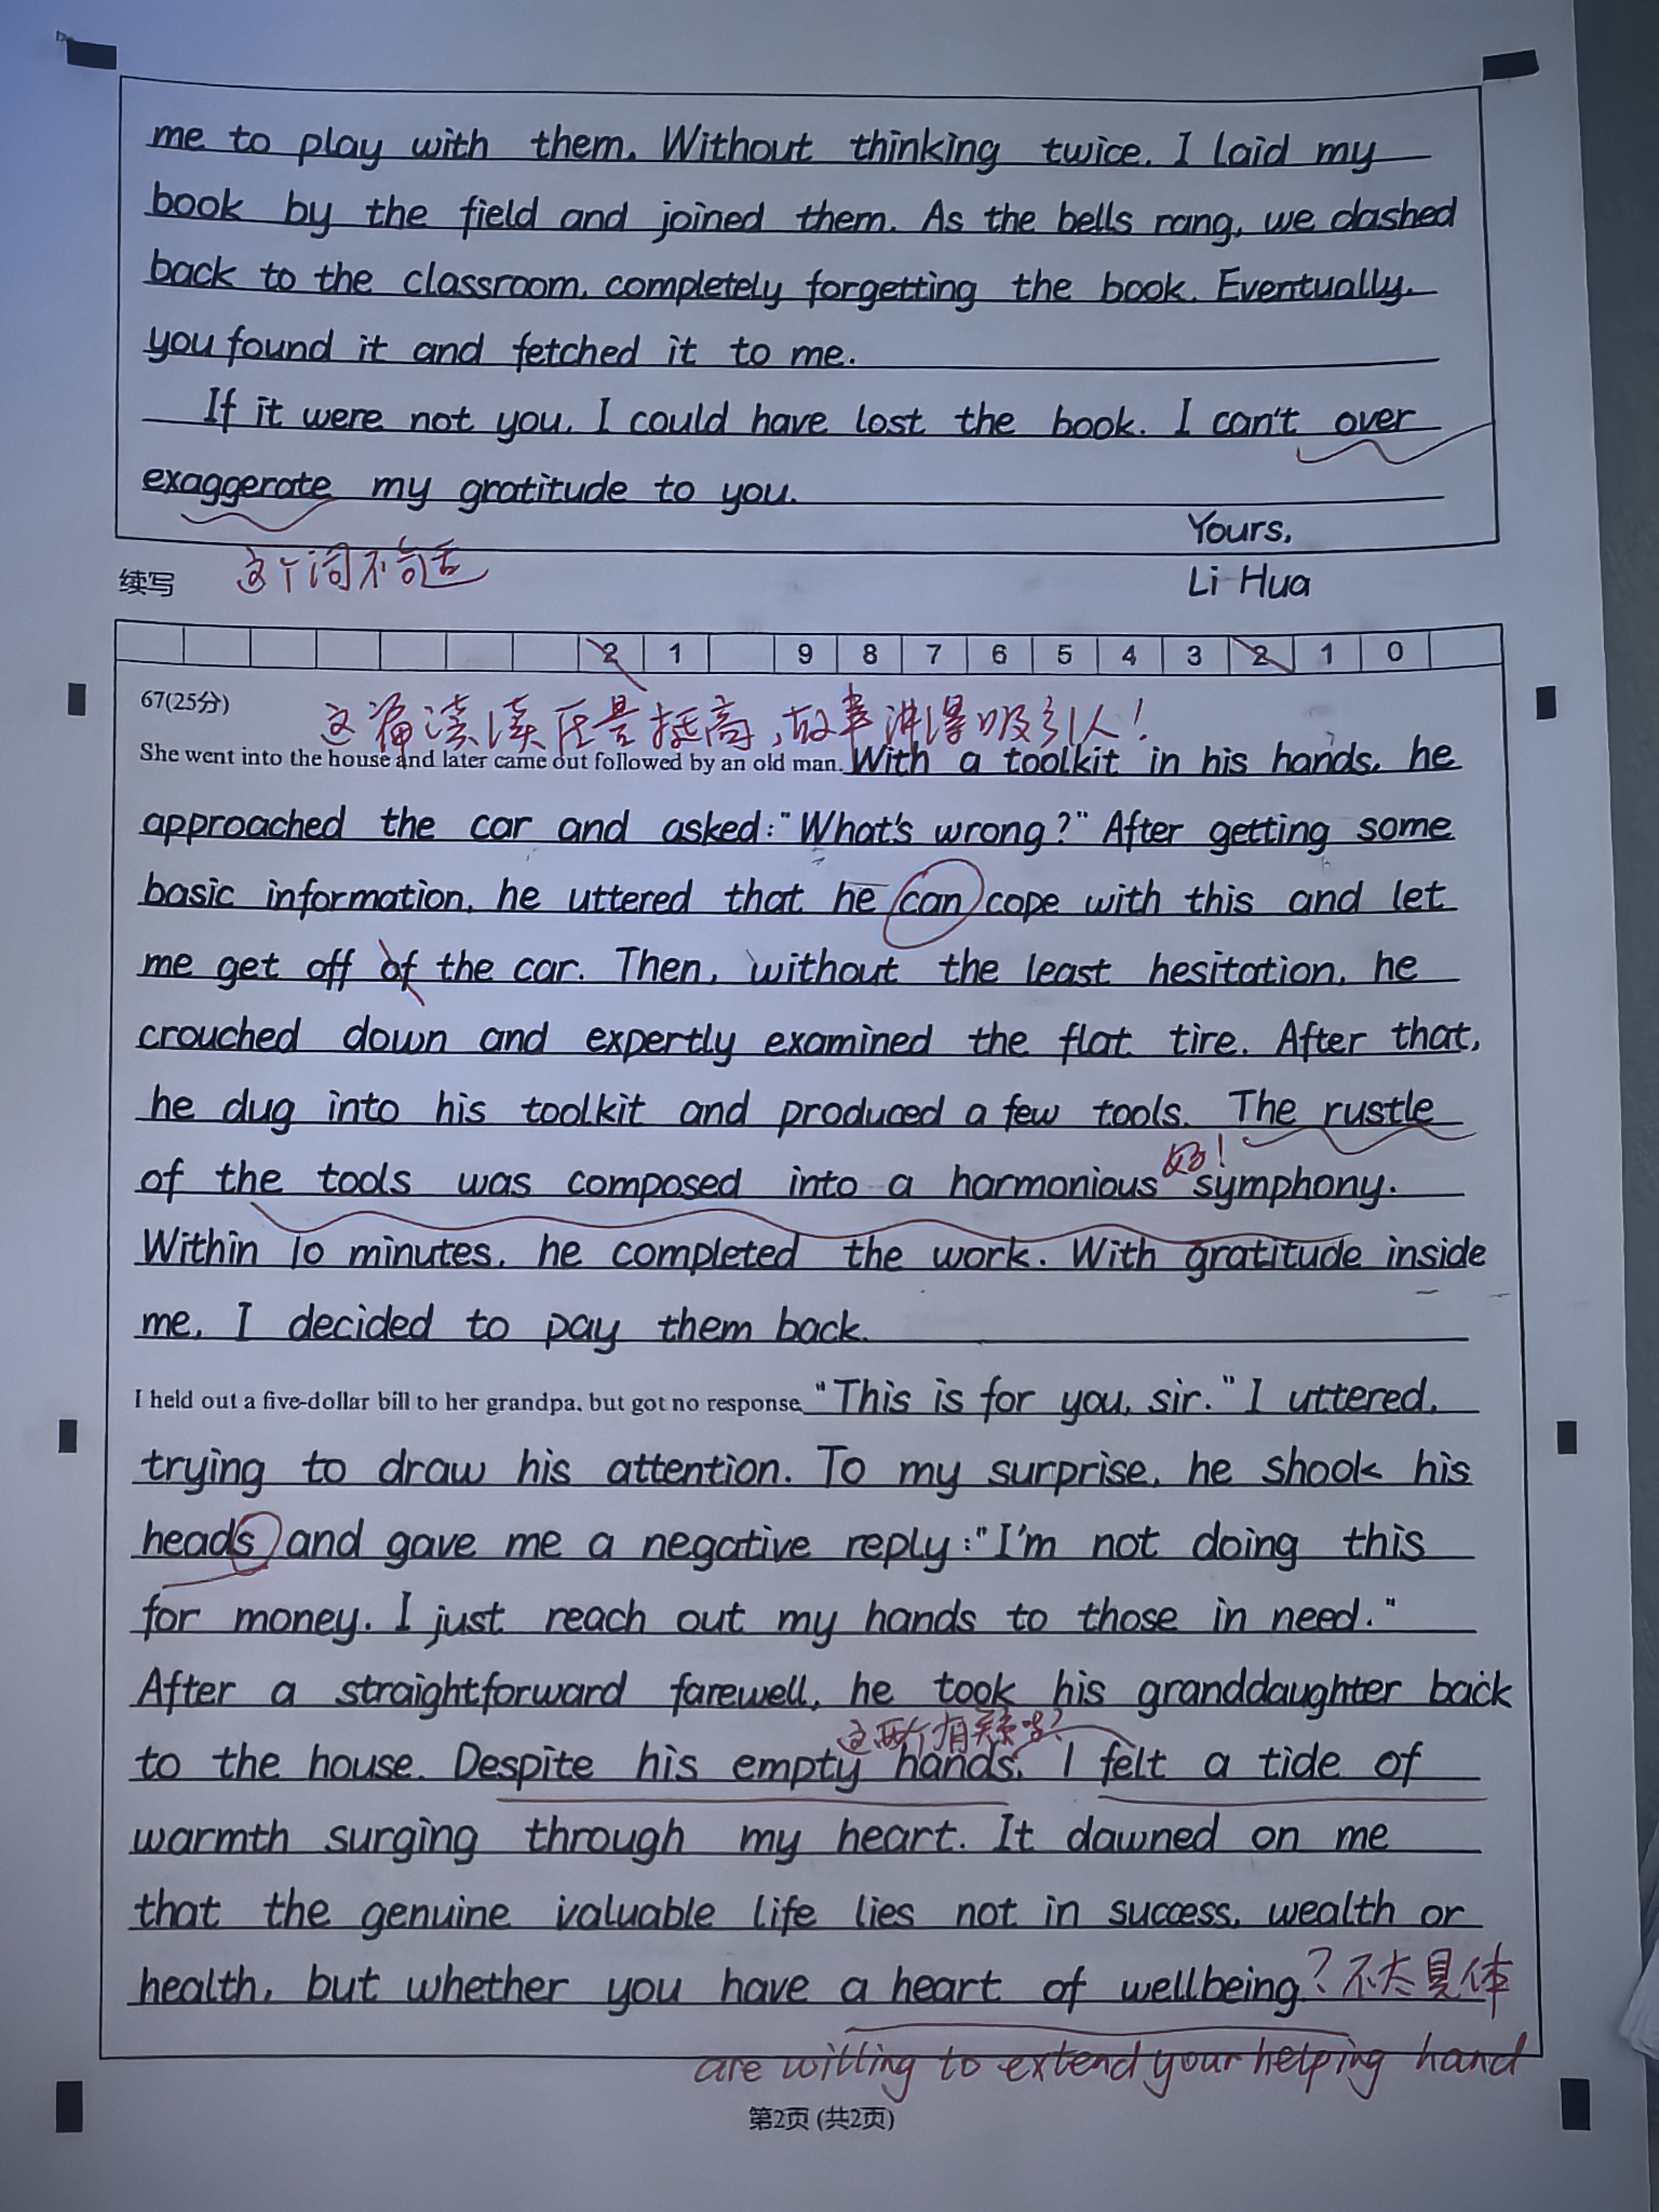 me to play with them. Without thinking twice. I laid my
book by the field and joined them. As the bells rang, we dashed
back to the classroom, completely forgetting the book. Eventually,
you found it and fetched it to me.
If it were not you, I could have lost the book. I can't over
exaggerate my gratitude to you.
Yours,
这个词不合适
续写
Li Hua
2 1 9 8 7 6 5 4 3 2 1 0
67(25分)
这篇读续质量挺高,故事讲得吸引人!
She went into the house and later came out followed by an old man. With a toolkit in his hands, he
approached the car and asked: "What's wrong?" After getting some
basic information, he uttered that he can cope with this and let
me get off of the car. Then, without the least hesitation, he
crouched down and expertly examined the flat tire. After that,
he dug into his toolkit and produced a few tools. The rustle
好!
of the tools was composed into a harmonious symphony.
Within 10 minutes, he completed the work. With gratitude inside
me, I decided to pay them back.
I held out a five-dollar bill to her grandpa, but got no response. "This is for you, sir." I uttered,
trying to draw his attention. To my surprise, he shook his
heads and gave me a negative reply: "I'm not doing this
for money. I just reach out my hands to those in need."
After a straightforward farewell, he took his granddaughter back
这两个有关系吗?
to the house. Despite his empty hands, I felt a tide of
warmth surging through my heart. It dawned on me
that the genuine valuable life lies not in success, wealth or
health, but whether you have a heart of wellbeing ? 不太具体
are willing to extend your helping hand
第2页 (共2页)